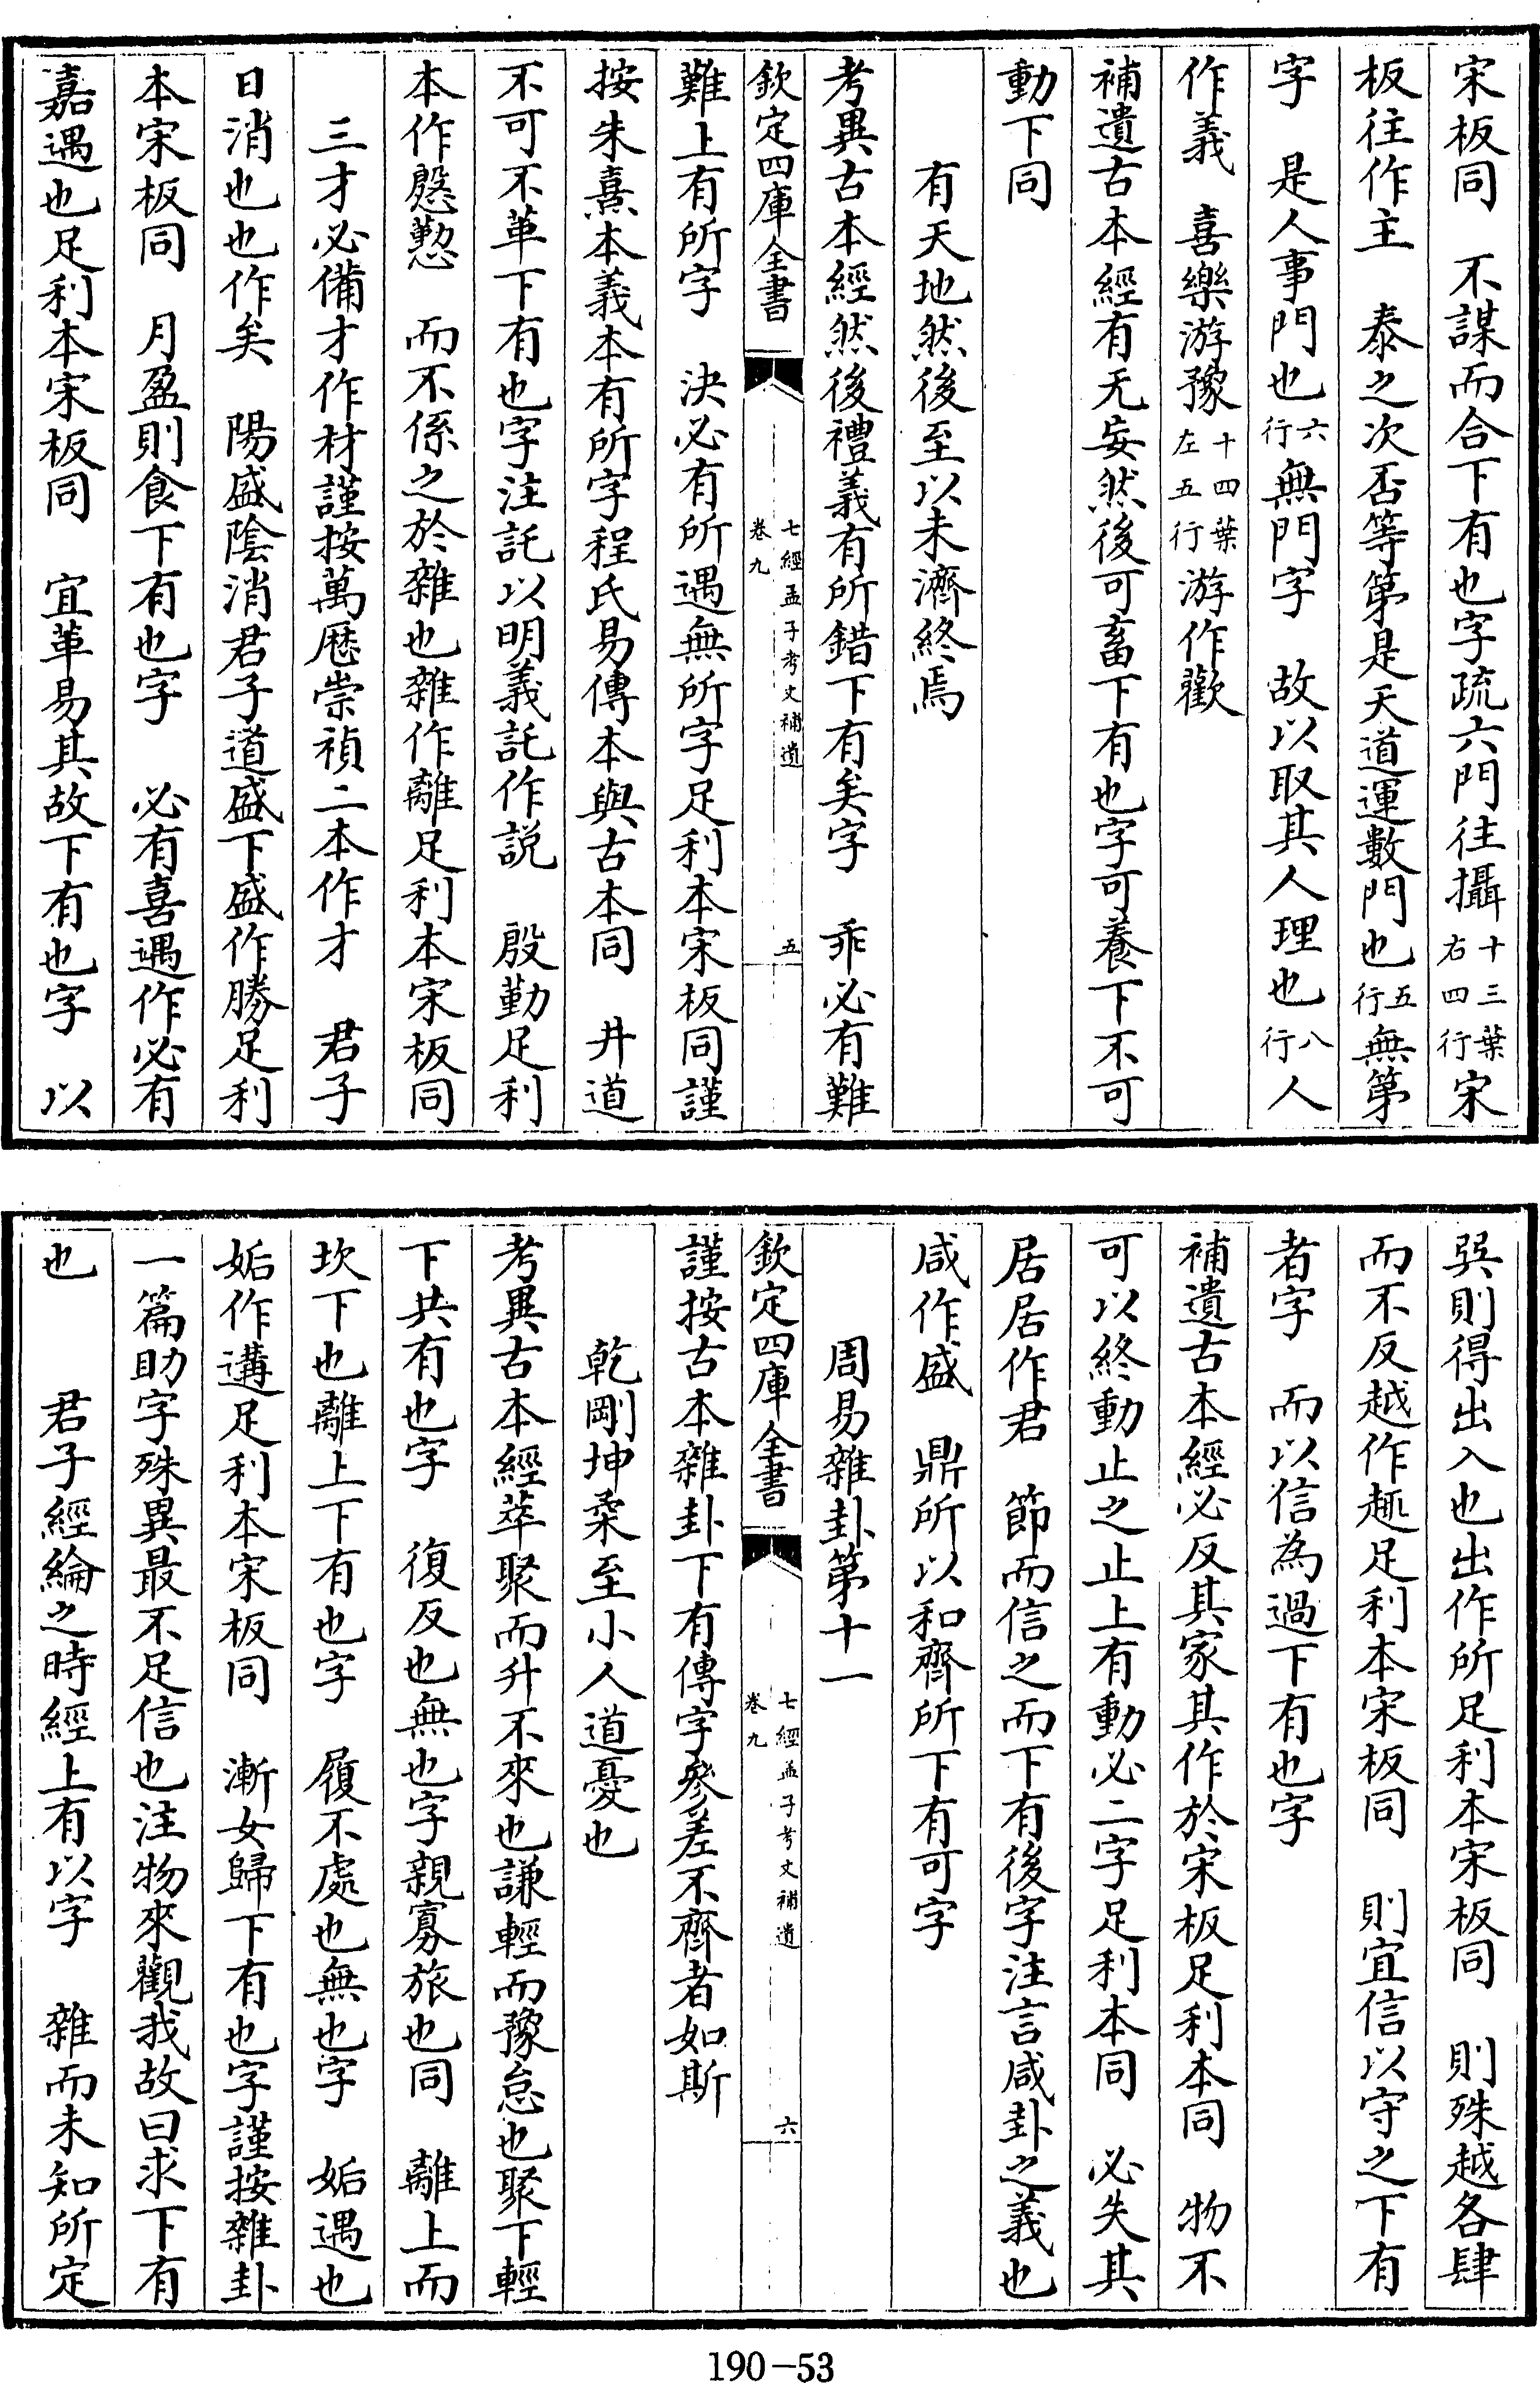 宋板同　不謀而合下有也字疏六門往攝十三葉右四行宋
板往作主　泰之次否等第是天道運數門也五行無第
字　是人事門也六行無門字　故以取其人理也八行人
作義　喜樂游豫十四葉左五行游作歡
補遺古本經有无妄然後可畜下有也字可養下不可
動下同
有天地然後至以未濟終焉
考異古本經然後禮義有所錯下有矣字　乖必有難
欽定四庫全書
七經孟子考文補遺
卷九
五
難上有所字　決必有所遇無所字足利本宋板同謹
按朱熹本義本有所字程氏易傳本與古本同　井道
不可不革下有也字注託以明義託作説　殷勤足利
本作慇懃　而不係之於離也雜作離足利本宋板同
三才必備才作材謹按萬厯崇禎二本作才　君子
日消也也作矣　陽盛陰消君子道盛下盛作勝足利
本宋板同　月盈則食下有也字　必有喜遇作必有
嘉遇也足利本宋板同　宜革易其故下有也字　以
巽則得出入也出作所足利本宋板同　則殊越各肆
而不反越作趣足利本宋板同　則宜信以守之下有
者字　而以信為過下有也字
補遺古本經必反其家其作於宋板足利本同　物不
可以終動止之止上有動必二字足利本同　必失其
居居作君　節而信之而下有後字注言咸卦之義也
咸作盛　鼎所以和齊所下有可字
周易雜卦第十一
欽定四庫全書
七經孟子考文補遺
卷九
六
謹按古本雜卦下有傳字參差不齊者如斯
乾剛坤柔至小人道憂也
考異古本經萃聚而升不來也謙輕而豫怠也聚下輕
下共有也字　復反也無也字親寡旅也同　離上而
坎下也離上下有也字　履不處也無也字　姤遇也
姤作遘足利本宋板同　漸女歸下有也字謹按雜卦
一篇助字殊異最不足信也注物來觀我故曰求下有
也　君子經綸之時經上有以字　雜而未知所定
190-53